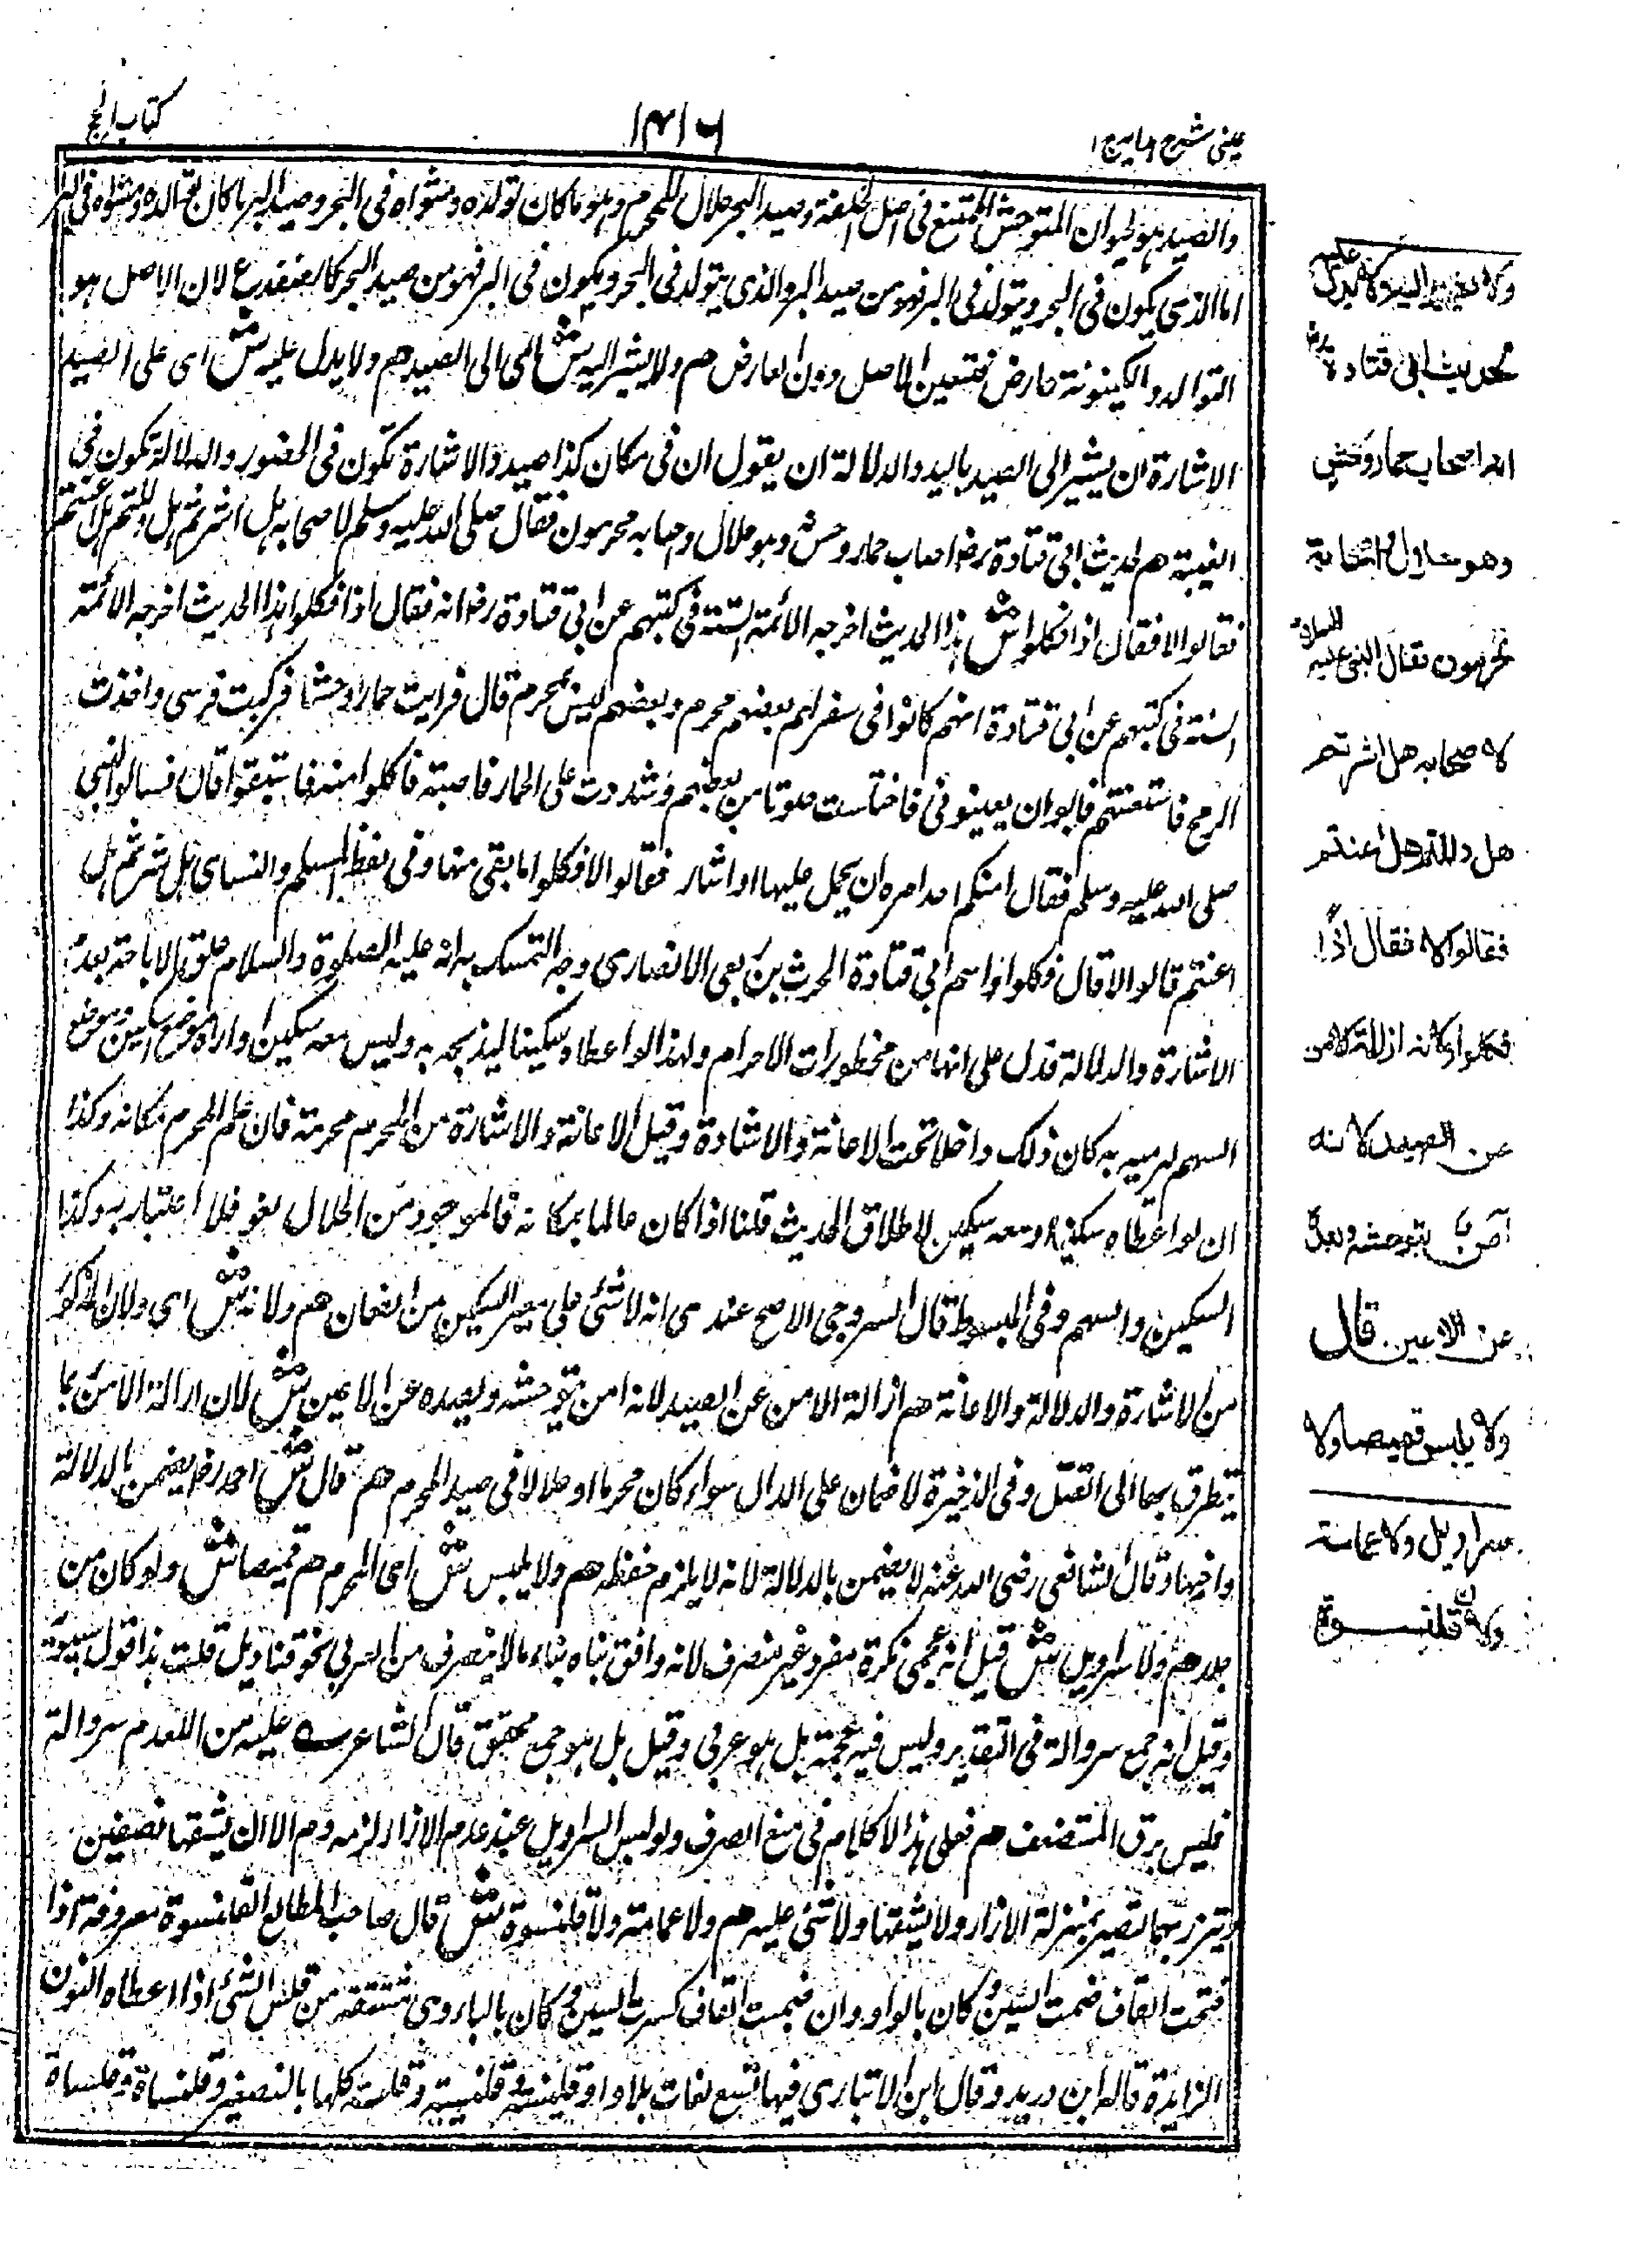 عینی شرح ہدایہ ج ۱
۱۴۱۶
کتاب الحج
والصيد هو الحيوان المتوحش الممتنع فى اصل الخلقة وصيد البحر حلال للمحرم وهو ما كان تولده ومثواه فى البحر وصيد البر ما كان توالده ومثواه فى البر
اما الذى يكون فى البحر ويتولد فى البر فهو من صيد البر والذى يتولد فى البحر ويكون فى البر فهو من صيد البحر كالضفدع لان الاصل هو
التوالد والكينونة عارض فتعين الاصل دون العارض هم ولا يشير اليه ش اى الى الصيد هم ولا يدل عليه ش اى على الصيد
الاشارة ان يشير الى الصيد باليد والدلالة ان يقول ان فى مكان كذا صيد والاشارة تكون فى الحضور والدلالة تكون فى
الغيبة هم لحديث ابى قتادة رض اصاب حمار وحش وهو حلال واصحابه محرمون فقال صلى الله عليه وسلم لاصحابه هل اشرتم هل دللتم هل اعنتم
فقالوا لا فقال اذا فكلوا ش هذا الحديث اخرجه الائمة الستة فى كتبهم عن ابى قتادة رض انه فقال اذا فكلوا هذا الحديث اخرجه الائمة
الستة فى كتبهم عن ابى قتادة انهم كانوا فى سفر لهم بعضهم محرم وبعضهم ليس بمحرم قال فرايت حمارا وحشا فركبت فرسى واخذت
الرمح فاستعنتهم فابوا ان يعينونى فاختلست سوطا من بعضهم وشددت على الحمار فاصبته فاكلوا منه فاستبقوا قال فسالوا النبى
صلى الله عليه وسلم فقال امنكم احد امره ان يحمل عليها او اشار فقالوا لا فكلوا ما بقى منها وفى لفظ لمسلم والنساى هل اشرتم هل
اعنتم قالوا لا قال فكلوا واسم ابى قتادة الحرث بن ربعى الانصارى وجه التمسك به انه عليه الصلوة والسلام علق الاباحة بعدم
الاشارة والدلالة فدل على انها من محظورات الاحرام ولهذا لو اعطاه سكينا ليذبحه به وليس معه سكين او اراه موضع سكين وموضع
السهم ليرميه به كان ذلك داخلا تحت الاعانة والاشارة وقيل الاعانة والاشارة من المحرم محرمة فان علم المحرم مكانه وكذا
ان لو اعطاه سكينا ومعه سكين لاطلاق الحديث قلنا اذا كان عالما بمكانه فالموجود من الحلال لغو فلا اعتبار به وكذا
السكين والسهم وفى المبسوط قال السروجى الاصح عندى انه لا شئ على معير السكين من الضمان هم ولانه ش اى ولان المذكور
من الاشارة والدلالة والاعانة هم ازالة الامن عن الصيد لانه امن بتوحشه وبعده عن الاعين ش لان ازالة الامن مما
يتطرق بها الى القتل وفى الذخيرة لا ضمان على الدال سواء كان محرما او حلالا فى صيد المحرم هم قال ش احمد رض يضمن بالدلالة
واخيها وقال الشافعى رضى الله عنه لا يضمن بالدلالة لانه لا يلزم حفظه هم ولا يلبس ش اى المحرم هم قميصا ش ولو كان من
جلد هم ولا سراويل ش قيل انه عجمى نكرة مفرد غير منصرف لانه وافق بناه بناء ما لا ينصرف من العربى نحو قناديل قلت هذا قول سيبويه
وقيل انه جمع سروالة فى التقدير وليس فيه عجمة بل هو عربى وقيل بل هو جمع محقق قال الشاعر ع عليه من اللوم سروالة
فليس يرق المستضعف هم فعلى هذا لا كلام فى منع الصرف ولو لبس السراويل عند عدم الازار لزمه دم الا ان يشقها نصفين
ويتزر بها لتصير بمنزلة الازار ولا يشقها ولا شئ عليه هم ولا عمامة ولا قلنسوة ش قال صاحب المطالع القلنسوة معروفة اذا
فتحت القاف ضمت السين وكان بالواو وان ضممت القاف كسرت السين وكان بالياء وهى مشتقة من قلس الشئ اذا اعطاه النون
الزائدة قاله ابن دريد وقال ابن الانبارى فيها تسع لغات بلاواو قلينسة وقلنيسية كلها بالتصغير وقلنساة
ولا يشير اليه ولا يدل عليه
لحديث ابى قتادة رض
انه اصاب حمار وحش
وهو حلال واصحابه
محرمون فقال النبى عليه السلام
لاصحابه هل اشرتم
هل دللتم هل اعنتم
فقالوا لا فقال اذًا
فكلوا ولانه ازالة الامن
عن الصيد لانه
امن بتوحشه وبعده
عن الاعين قال
ولا يلبس قميصا ولا
سراويل ولا عمامة
ولا قلنسوة